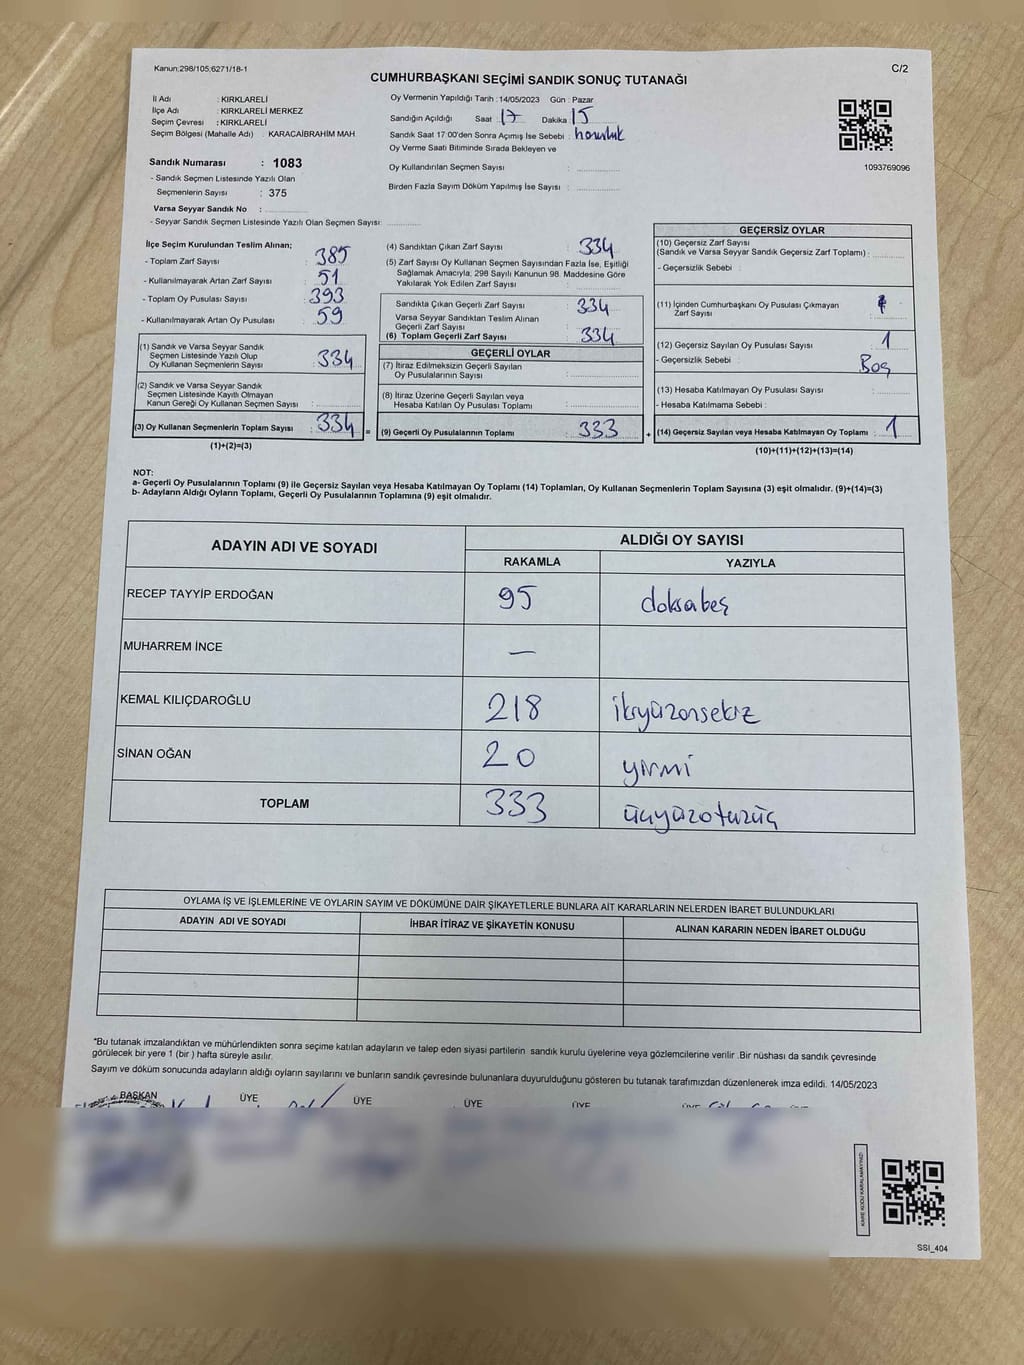 Kanun;298/105,6271/18-1
C/2
CUMHURBAŞKANI SEÇİMİ SANDIK SONUÇ TUTANAĞI
İl Adı : KIRKLARELİ
İlçe Adı : KIRKLARELİ MERKEZ
Seçim Çevresi : KIRKLARELİ
Seçim Bölgesi (Mahalle Adı) : KARACAİBRAHİM MAH
Oy Vermenin Yapıldığı Tarih : 14/05/2023 Gün : Pazar
Sandığın Açıldığı Saat 17 Dakika 15
Sandık Saat 17:00'den Sonra Açımış İse Sebebi :
Oy Verme Saati Bitiminde Sırada Bekleyen ve
Oy Kullandırılan Seçmen Sayısı :
Birden Fazla Sayım Döküm Yapılmış İse Sayısı :
1093769096
Sandık Numarası : 1083
- Sandık Seçmen Listesinde Yazılı Olan
Seçmenlerin Sayısı : 375
Varsa Seyyar Sandık No :
- Seyyar Sandık Seçmen Listesinde Yazılı Olan Seçmen Sayısı:
İlçe Seçim Kurulundan Teslim Alınan;
- Toplam Zarf Sayısı : 385
- Kullanılmayarak Artan Zarf Sayısı : 51
- Toplam Oy Pusulası Sayısı : 393
- Kullanılmayarak Artan Oy Pusulası : 59
(1) Sandık ve Varsa Seyyar Sandık
Seçmen Listesinde Yazılı Olup
Oy Kullanan Seçmenlerin Sayısı : 334
(2) Sandık ve Varsa Seyyar Sandık
Seçmen Listesinde Kayıtlı Olmayan
Kanun Gereği Oy Kullanan Seçmen Sayısı :
(3) Oy Kullanan Seçmenlerin Toplam Sayısı : 334
(1)+(2)=(3)
(4) Sandıktan Çıkan Zarf Sayısı : 334
(5) Zarf Sayısı Oy Kullanan Seçmen Sayısından Fazla İse, Eşitliği
Sağlamak Amacıyla, 298 Sayılı Kanunun 98. Maddesine Göre
Yakılarak Yok Edilen Zarf Sayısı :
Sandıkta Çıkan Geçerli Zarf Sayısı : 334
Varsa Seyyar Sandıktan Teslim Alınan
Geçerli Zarf Sayısı :
(6) Toplam Geçerli Zarf Sayısı : 334
GEÇERLİ OYLAR
(7) İtiraz Edilmeksizin Geçerli Sayılan
Oy Pusulalarının Sayısı :
(8) İtiraz Üzerine Geçerli Sayılan veya
Hesaba Katılan Oy Pusulası Toplamı :
= (9) Geçerli Oy Pusulalarının Toplamı : 333
GEÇERSİZ OYLAR
(10) Geçersiz Zarf Sayısı
(Sandık ve Varsa Seyyar Sandık Geçersiz Zarf Toplamı) :
- Geçersizlik Sebebi :
(11) İçinden Cumhurbaşkanı Oy Pusulası Çıkmayan
Zarf Sayısı :
(12) Geçersiz Sayılan Oy Pusulası Sayısı : 1
- Geçersizlik Sebebi : Boş
(13) Hesaba Katılmayan Oy Pusulası Sayısı :
- Hesaba Katılmama Sebebi :
+ (14) Geçersiz Sayılan veya Hesaba Katılmayan Oy Toplamı : 1
(10)+(11)+(12)+(13)=(14)
NOT:
a- Geçerli Oy Pusulalarının Toplamı (9) ile Geçersiz Sayılan veya Hesaba Katılmayan Oy Toplamı (14) Toplamları, Oy Kullanan Seçmenlerin Toplam Sayısına (3) eşit olmalıdır. (9)+(14)=(3)
b- Adayların Aldığı Oyların Toplamı, Geçerli Oy Pusulalarının Toplamına (9) eşit olmalıdır.
ADAYIN ADI VE SOYADI
ALDIĞI OY SAYISI
RAKAMLA YAZIYLA
RECEP TAYYİP ERDOĞAN 95 doksabeş
MUHARREM İNCE —
KEMAL KILIÇDAROĞLU 218 ikiyüzonsekiz
SİNAN OĞAN 20 yirmi
TOPLAM 333 üçyüzotuzüç
OYLAMA İŞ VE İŞLEMLERİNE VE OYLARIN SAYIM VE DÖKÜMÜNE DAİR ŞİKAYETLERLE BUNLARA AİT KARARLARIN NELERDEN İBARET BULUNDUKLARI
ADAYIN ADI VE SOYADI İHBAR İTİRAZ VE ŞİKAYETİN KONUSU ALINAN KARARIN NEDEN İBARET OLDUĞU
*Bu tutanak imzalandıktan ve mühürlendikten sonra seçime katılan adayların ve talep eden siyasi partilerin sandık kurulu üyelerine veya gözlemcilerine verilir .Bir nüshası da sandık çevresinde
görülecek bir yere 1 (bir ) hafta süreyle asılır.
Sayım ve döküm sonucunda adayların aldığı oyların sayılarını ve bunların sandık çevresinde bulunanlara duyurulduğunu gösteren bu tutanak tarafımızdan düzenlenerek imza edildi. 14/05/2023
BAŞKAN ÜYE ÜYE ÜYE ÜYE ÜYE
SSI_404